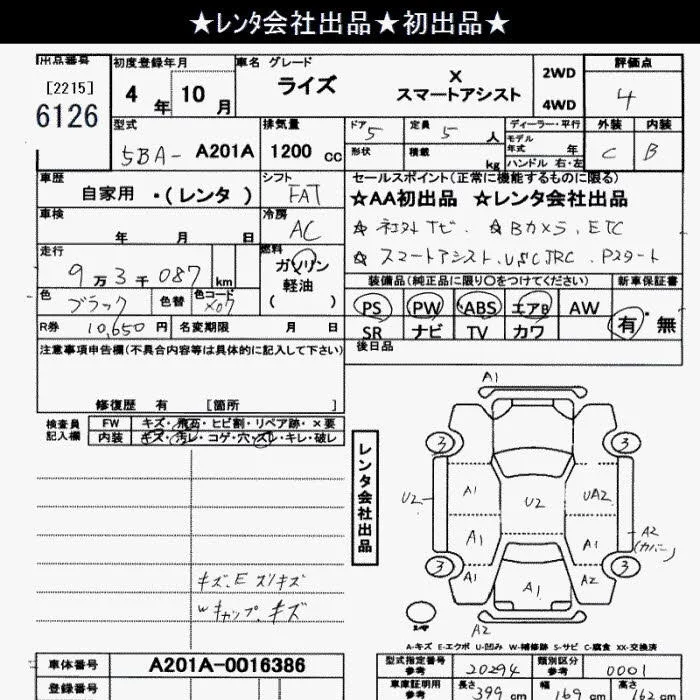 ★レンタ会社出品★初出品★
出品番号 初度登録年月 車名 グレード 評価点
[2215]
6126
4年 10月
ライズ
X
スマートアシスト
2WD
4WD
4
型式 排気量 ドア 5 定員 5人 ディーラー・平行 外装 内装
5BA- A201A 1200cc
形状 積載 kg
モデル年式 年
ハンドル 右・左
C B
車歴 シフト
自家用・(レンタ) FAT
セールスポイント(正常に機能するものに限る)
★AA初出品 ★レンタ会社出品
車検 年 月 日 冷房 AC
☆ Bカメラ、ETC
☆ スマートアシスト、USC JRC、Pスタート
走行 燃料
9万3千087km
ガソリン
軽油
( )
装備品(純正品に限り○をつけてください) 新車保証書
色 ブラック 色替 色コード X07
PS PW ABS エアB AW 有・無
SR ナビ TV カワ
R券 10,650円 名変期限 月 日
後日品
注意事項申告欄(不具合内容等は具体的に記入して下さい)
修復歴 有 [箇所 ]
検査員記入欄
FW キズ・飛石・ヒビ割・リペア跡・×要
内装 キズ・汚レ・コゲ・穴・スレ・キレ・破レ
レンタ会社出品
A1
3 3
U2 A1 U2 UA2
A1 A1 A2(カバー)
3 3
A1 A1 A2
A2
キズ、E スリキズ
Wキャップ、キズ
A-キズ E-エクボ U-凹み W-補修跡 S-サビ C-腐食 XX-交換済
車体番号 A201A-0016386
型式指定番号 参考 20294 類別区分 参考 0001
登録番号
車庫証明用 参考 長さ 399cm 幅 169cm 高さ 162cm